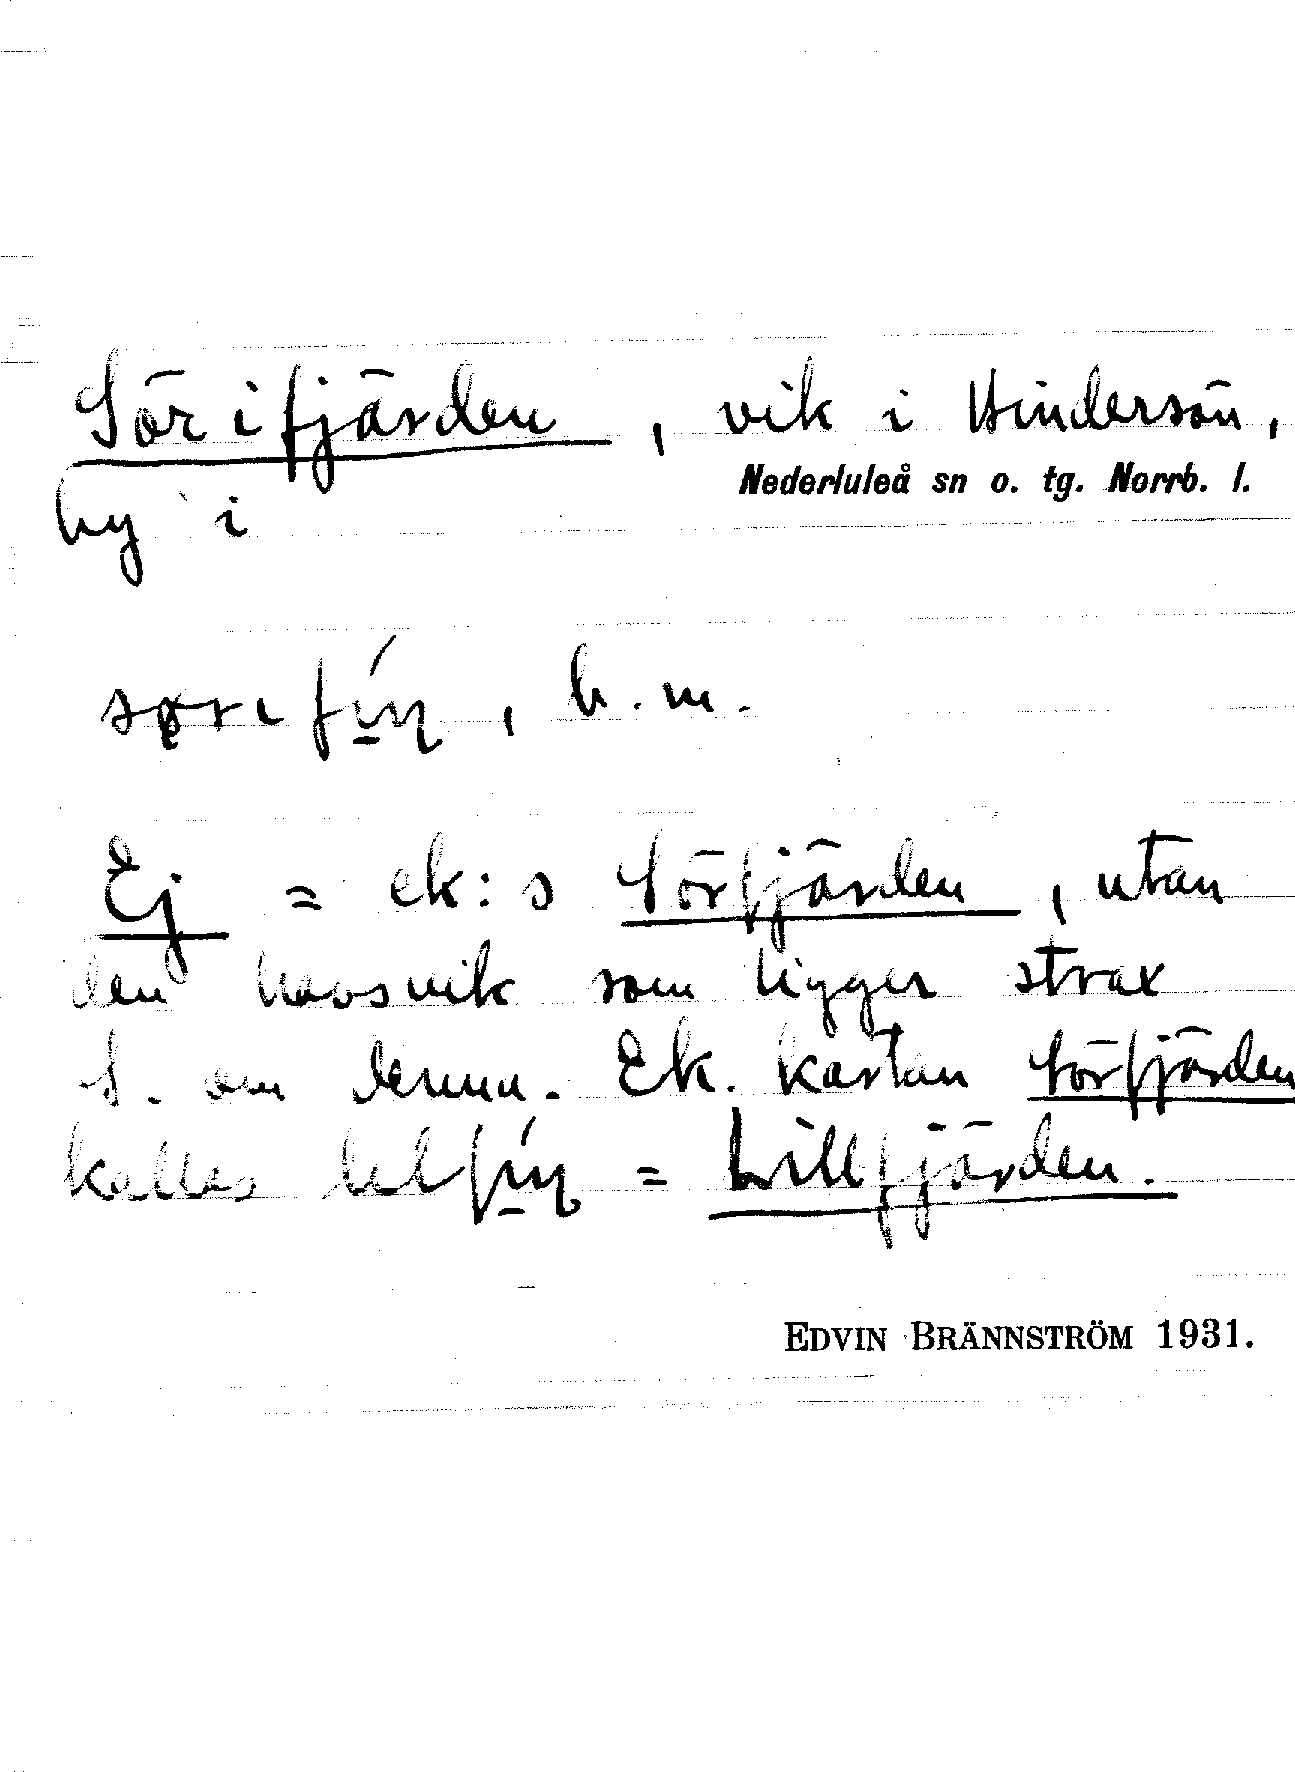 Sörifjärden, vik i Hindersön,
Nederluleå sn o. tg. Norrb. l.
by i
b. m.
Ej = ek:s Sörfjärden, utan
den havsvik som ligger strax
S. om denna. Ek. kartan Sörfjärden
kallas = Lillfjärden.
EDVIN BRÄNNSTRÖM 1931.